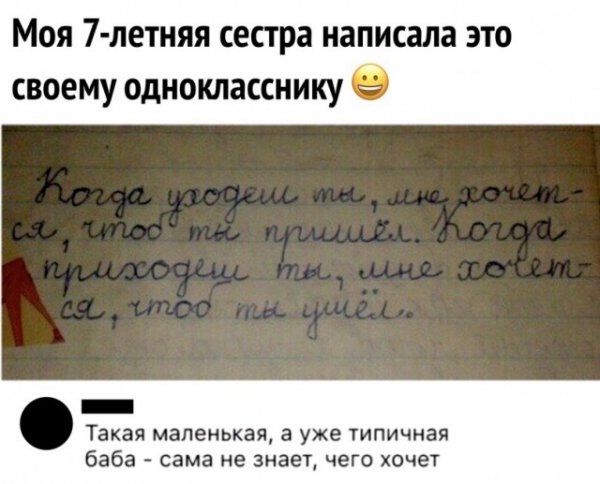 Моя 7-летняя сестра написала это
своему однокласснику 😀
Когда уходеш ты, мне хочет-
ся, чтоб ты пришёл. Когда
приходеш ты, мне хочет-
ся, чтоб ты ушёл.
Такая маленькая, а уже типичная
баба - сама не знает, чего хочет